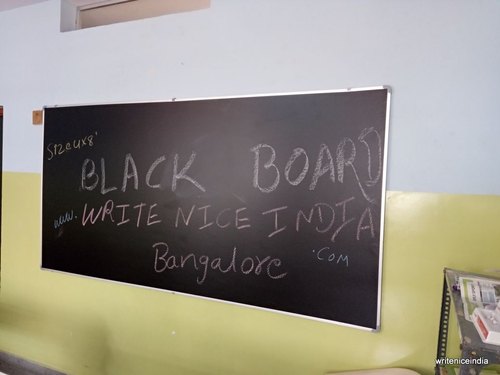 Size 4x8'
BLACK BOARD
www. WRITE NICE INDIA
.COM
Bangalore
writeniceindia